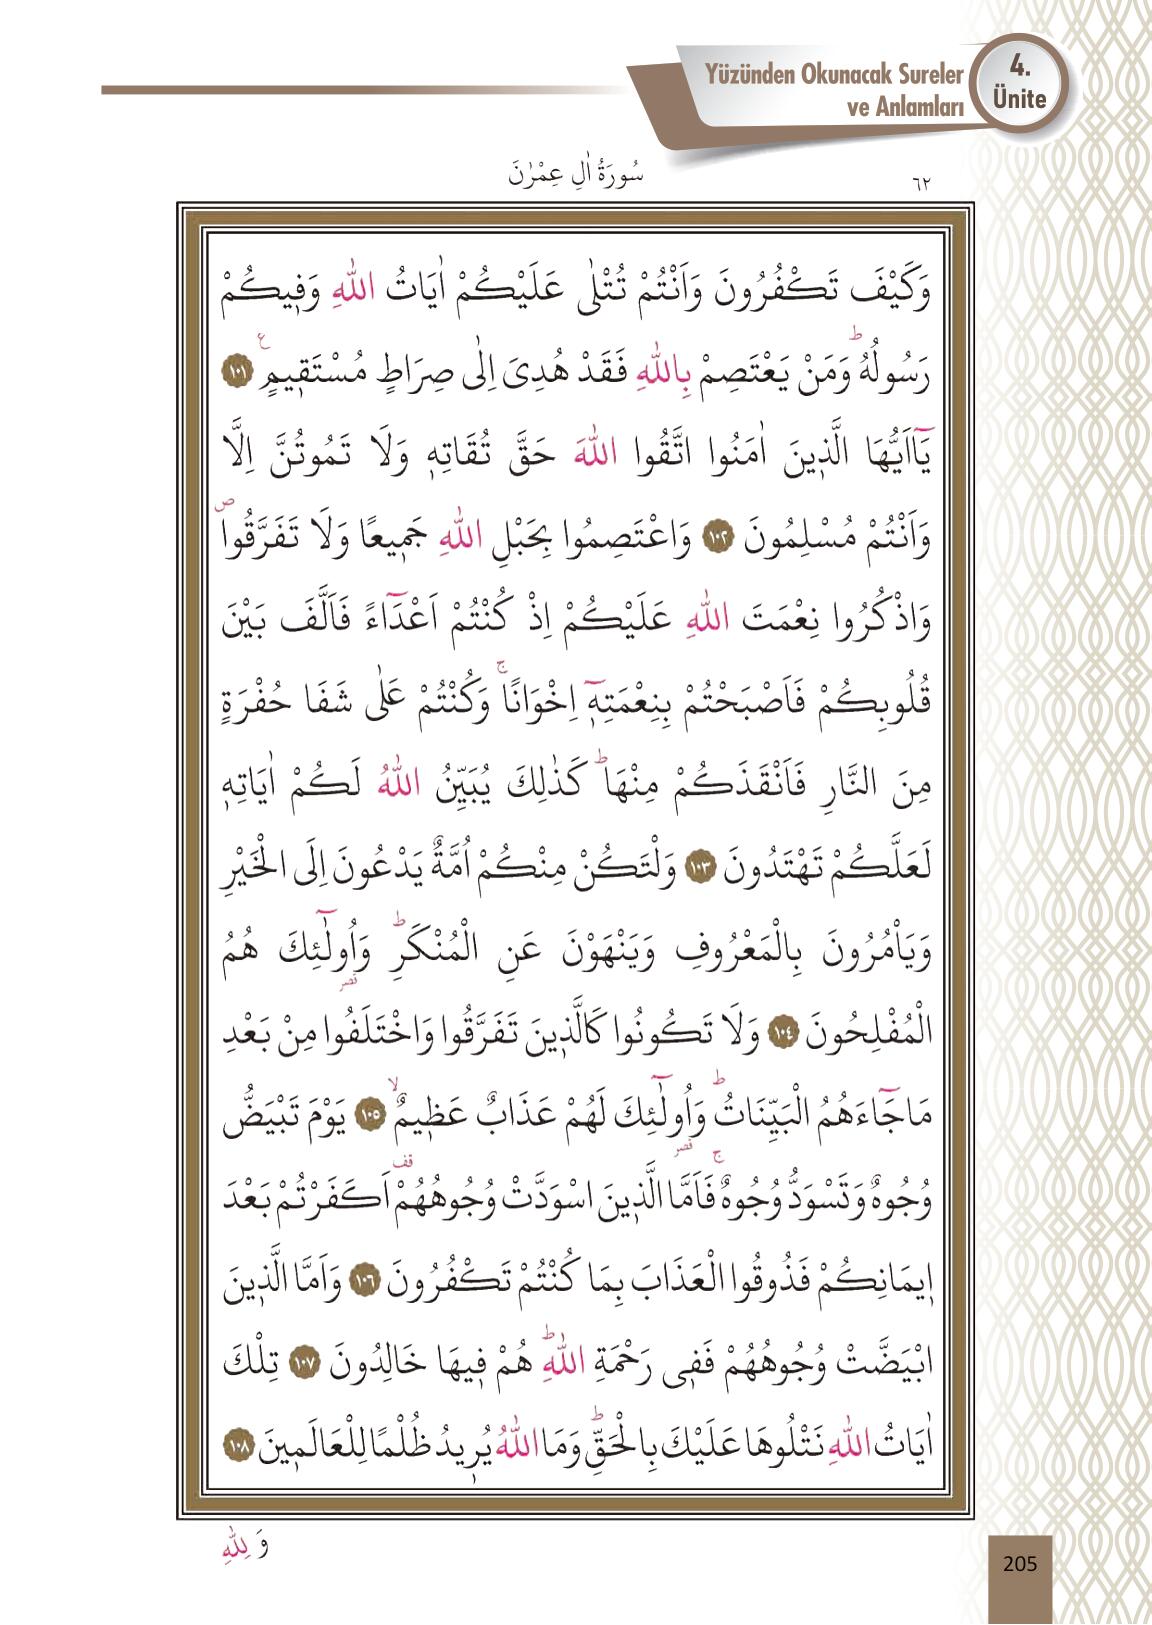 Yüzünden Okunacak Sureler
ve Anlamları
4.
Ünite
سُورَةُ اٰلِ عِمْرٰنَ
٦٢
وَكَيْفَ تَكْفُرُونَ وَاَنْتُمْ تُتْلٰى عَلَيْكُمْ اٰيَاتُ اللّٰهِ وَفٖيكُمْ
رَسُولُهُؕ وَمَنْ يَعْتَصِمْ بِاللّٰهِ فَقَدْ هُدِىَ اِلٰى صِرَاطٍ مُسْتَقٖيمٍ ࣖ ﴿١٠١﴾
يَٓااَيُّهَا الَّذٖينَ اٰمَنُوا اتَّقُوا اللّٰهَ حَقَّ تُقَاتِهٖ وَلَا تَمُوتُنَّ اِلَّا
وَاَنْتُمْ مُسْلِمُونَ ﴿١٠٢﴾ وَاعْتَصِمُوا بِحَبْلِ اللّٰهِ جَمٖيعًا وَلَا تَفَرَّقُواࣕ
وَاذْكُرُوا نِعْمَتَ اللّٰهِ عَلَيْكُمْ اِذْ كُنْتُمْ اَعْدَٓاءً فَاَلَّفَ بَيْنَ
قُلُوبِكُمْ فَاَصْبَحْتُمْ بِنِعْمَتِهٖٓ اِخْوَانًاۚ وَكُنْتُمْ عَلٰى شَفَا حُفْرَةٍ
مِنَ النَّارِ فَاَنْقَذَكُمْ مِنْهَاؕ كَذٰلِكَ يُبَيِّنُ اللّٰهُ لَكُمْ اٰيَاتِهٖ
لَعَلَّكُمْ تَهْتَدُونَ ﴿١٠٣﴾ وَلْتَكُنْ مِنْكُمْ اُمَّةٌ يَدْعُونَ اِلَى الْخَيْرِ
وَيَاْمُرُونَ بِالْمَعْرُوفِ وَيَنْهَوْنَ عَنِ الْمُنْكَرِؕ وَاُولٰٓئِكَ هُمُ
الْمُفْلِحُونَ ﴿١٠٤﴾ وَلَا تَكُونُوا كَالَّذٖينَ تَفَرَّقُوا وَاخْتَلَفُوا مِنْ بَعْدِ
مَا جَٓاءَهُمُ الْبَيِّنَاتُؕ وَاُولٰٓئِكَ لَهُمْ عَذَابٌ عَظٖيمٌۙ ﴿١٠٥﴾ يَوْمَ تَبْيَضُّ
وُجُوهٌ وَتَسْوَدُّ وُجُوهٌۚ فَاَمَّا الَّذٖينَ اسْوَدَّتْ وُجُوهُهُمْ اَكَفَرْتُمْ بَعْدَ
اٖيمَانِكُمْ فَذُوقُوا الْعَذَابَ بِمَا كُنْتُمْ تَكْفُرُونَ ﴿١٠٦﴾ وَاَمَّا الَّذٖينَ
ابْيَضَّتْ وُجُوهُهُمْ فَفٖى رَحْمَةِ اللّٰهِؕ هُمْ فٖيهَا خَالِدُونَ ﴿١٠٧﴾ تِلْكَ
اٰيَاتُ اللّٰهِ نَتْلُوهَا عَلَيْكَ بِالْحَقِّؕ وَمَا اللّٰهُ يُرٖيدُ ظُلْمًا لِلْعَالَمٖينَ ﴿١٠٨﴾
وَ لِلّٰهِ
205